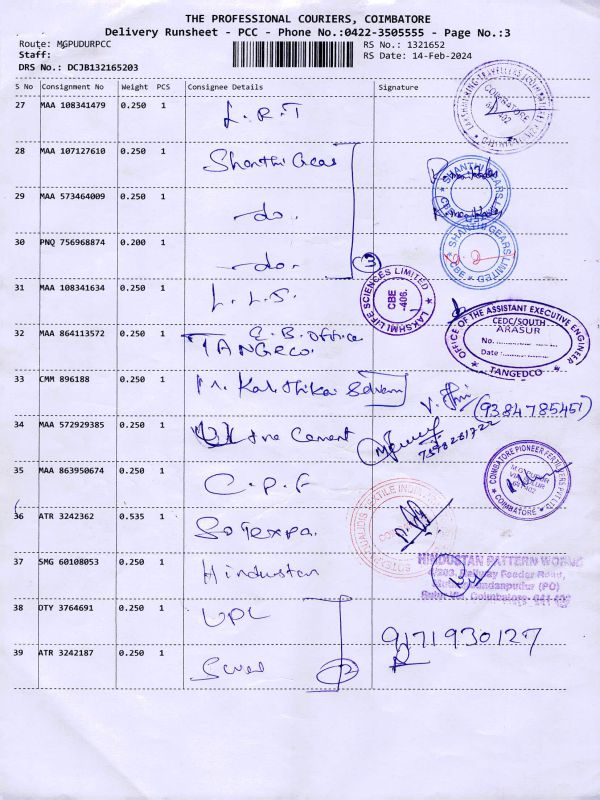 THE PROFESSIONAL COURIERS, COIMBATORE
Delivery Runsheet - PCC - Phone No.:0422-3505555 - Page No.:3
Route: MGPUDURPCC
RS No.: 1321652
Staff:
RS Date: 14-Feb-2024
DRS No.: DCJB132165203
S No Consignment No Weight PCS Consignee Details Signature
27 MAA 108341479 0.250 1 L.R.T
28 MAA 107127610 0.250 1 Shanthi Gears
29 MAA 573464009 0.250 1 -do-
30 PNQ 756968874 0.200 1 -do-
3
31 MAA 108341634 0.250 1 L.L.S.
LAKSHMI LIFE SCIENCES LIMITED
CBE -406.
SHANTHI GEARS LIMITED
CBE
32 MAA 864113572 0.250 1 E.B. office
TANGEDCO.
OFFICE OF THE ASSISTANT EXECUTIVE ENGINEER
CEDC/SOUTH
ARASUR
No.
Date :
TANGEDCO
33 CMM 896188 0.250 1 Mr. Karthikai Selvam
(9384785451)
34 MAA 572929385 0.250 1 Cement
35 MAA 863950674 0.250 1 C.P.F
COIMBATORE PIONEER FERTILIZERS PVT LTD
COIMBATORE
36 ATR 3242362 0.535 1 Sotexpa.
37 SMG 60108053 0.250 1 Hindustan
HINDUSTAN PATTERN WORKS
4/203, Railway Feeder Road,
38 DTY 3764691 0.250 1 UPL
9171930127
39 ATR 3242187 0.250 1
2